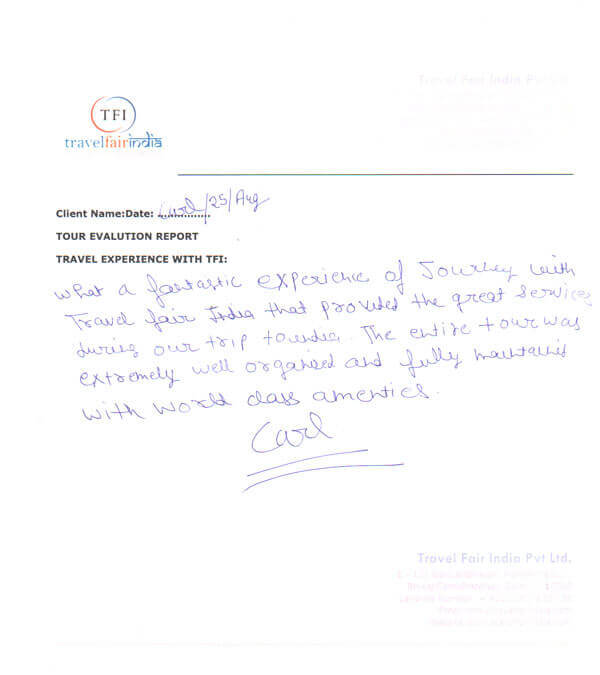 Travel Fair India Pvt Ltd.
TFI
travelfairindia
Client Name:Date: Carl/25/Aug
TOUR EVALUTION REPORT
TRAVEL EXPERIENCE WITH TFI:
what a fantastic experience of Journey with
Travel fair India that provided the great services
during our trip to India. The entire tour was
extremely well organised and fully maintained
with world class amenties.
Carl
Travel Fair India Pvt Ltd.